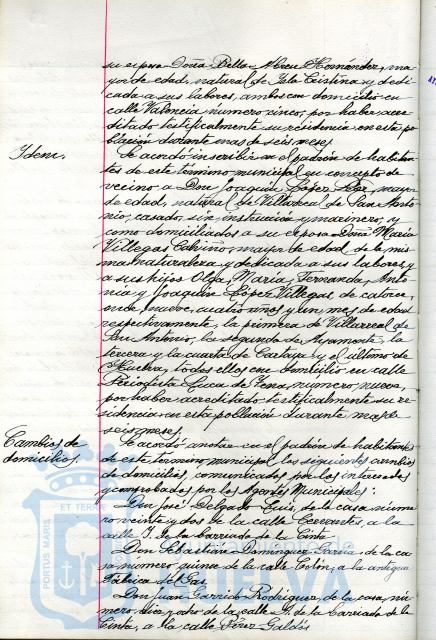 su esposa Doña Bella Abreu Hernández, ma-
yor de edad, natural de Isla Cristina y dedi-
cada a sus labores, ambos con domicilio en
calle Valencia número cinco, por haber acre-
ditado testificalmente su residencia en esta po-
blación durante mas de seis meses
Idem.
Se acordó inscribir en el padrón de habitan-
tes de este término municipal en concepto de
vecino a Don Joaquín López, mayor
de edad, natural de Villarreal de San Anto-
nio, casado, sin instrucción y marinero, y
como domiciliados a su esposa Doña María
Villegas Calviño, mayor de edad, de la mis-
ma naturaleza y dedicada a sus labores y
a sus hijos Olga, María, Fernanda, Anto-
nia y Joaquín López Villegas, de catorce,
once, nueve, cuatro años y un mes de edad
respectivamente, la primera de Villarreal de
San Antonio, la segunda de Ayamonte, la
tercera y la cuarta de Cartaya y el último de
Huelva, todos ellos con domicilio en calle
Periodista Luca de Tena, número nueve,
por haber acreditado testificalmente su re-
sidencia en esta población durante mas de
seis meses.
Cambios de
domicilios.
Se acordó anotar en el padrón de habitantes
de este término municipal los siguientes cambios
de domicilios, comunicados por los interesados
y comprobados por los Agentes Municipales:
Don José Delgado Luis, de la casa núme-
ro veinte y dos de la calle Cervantes, a la
calle J. de la barriada de la Cinta
Don Sebastián Domínguez García, de la ca-
sa número quince de la calle Colón, a la antigua
Fábrica del Gas.
Don Juan Garrido Rodríguez, de la casa, nú-
mero diez y ocho de la calle A. de la barriada de la
Cinta, a la calle Pérez Galdós
PORTUS MARIS
ET TERRAE